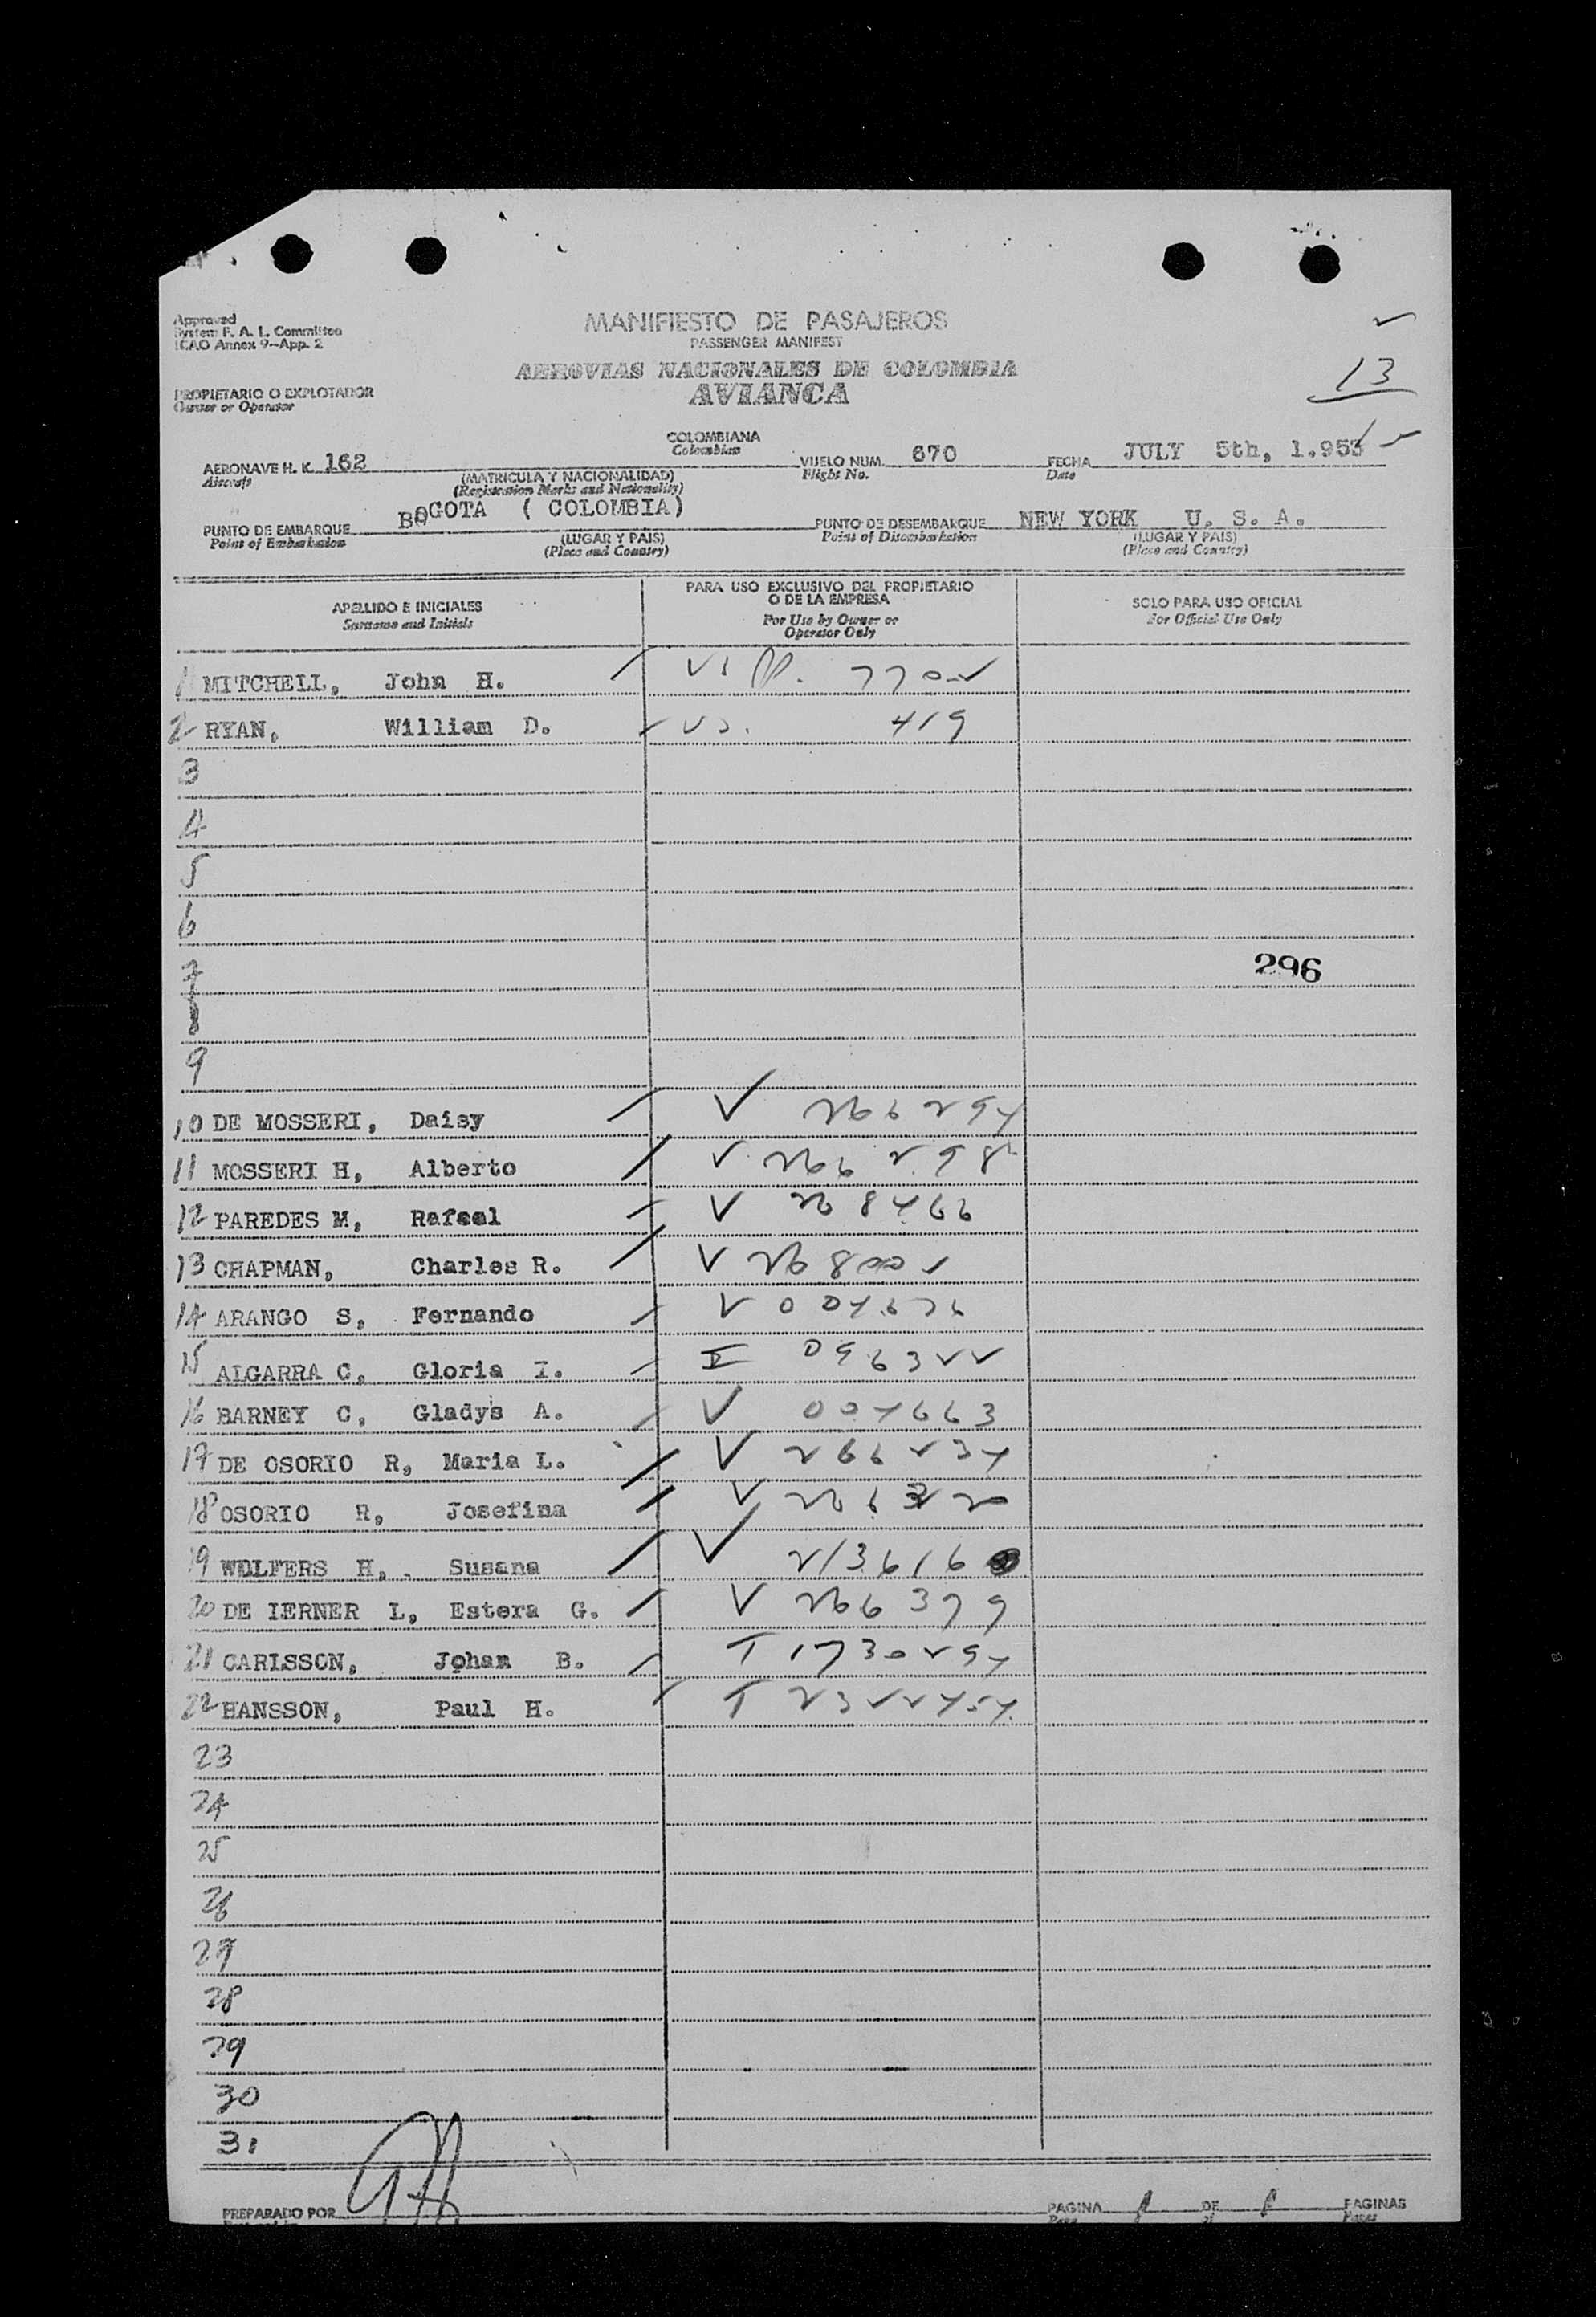 Approved
System F. A. L. Committee
ICAO Annex 9-App. 2
MANIFIESTO DE PASAJEROS
PASSENGER MANIFEST
AEROVIAS NACIONALES DE COLOMBIA
AVIANCA
13
PROPIETARIO O EXPLOTADOR
Owner or Operator
COLOMBIANA
Colombian
AERONAVE H. K. 162
Aircraft
(MATRICULA Y NACIONALIDAD)
(Registration Marks and Nationality)
VUELO NUM. 670
Flight No.
FECHA JULY 5th, 1.953
Date
PUNTO DE EMBARQUE BOGOTA ( COLOMBIA)
Point of Embarkation
(LUGAR Y PAIS)
(Place and Country)
PUNTO DE DESEMBARQUE NEW YORK U. S. A.
Point of Disembarkation
(LUGAR Y PAIS)
(Place and Country)
APELLIDO E INICIALES
Surname and Initials
PARA USO EXCLUSIVO DEL PROPIETARIO
O DE LA EMPRESA
For Use by Owner or
Operator Only
SOLO PARA USO OFICIAL
For Official Use Only
1 MITCHELL, John H.
2 RYAN, William D. 419
3
4
5
6
7
296
8
9
10 DE MOSSERI, Daisy V 266294
11 MOSSERI H, Alberto V 266298
12 PAREDES M, Rafael V
13 CHAPMAN, Charles R. V
14 ARANGO S, Fernando V
15 ALGARRA C, Gloria I. I 096322
16 BARNEY C, Gladys A. V 004663
17 DE OSORIO R, Maria L. V 266234
18 OSORIO R, Josefina V
19 WOLFERS H, Susana V 213616
20 DE IERNER L, Estera G. V 266399
21 CARLSSON, Johan B. T 1730294
22 HANSSON, Paul H. T 2322454
23
24
25
26
27
28
29
30
31
PREPARADO POR
PAGINA 1 DE 1 PAGINAS